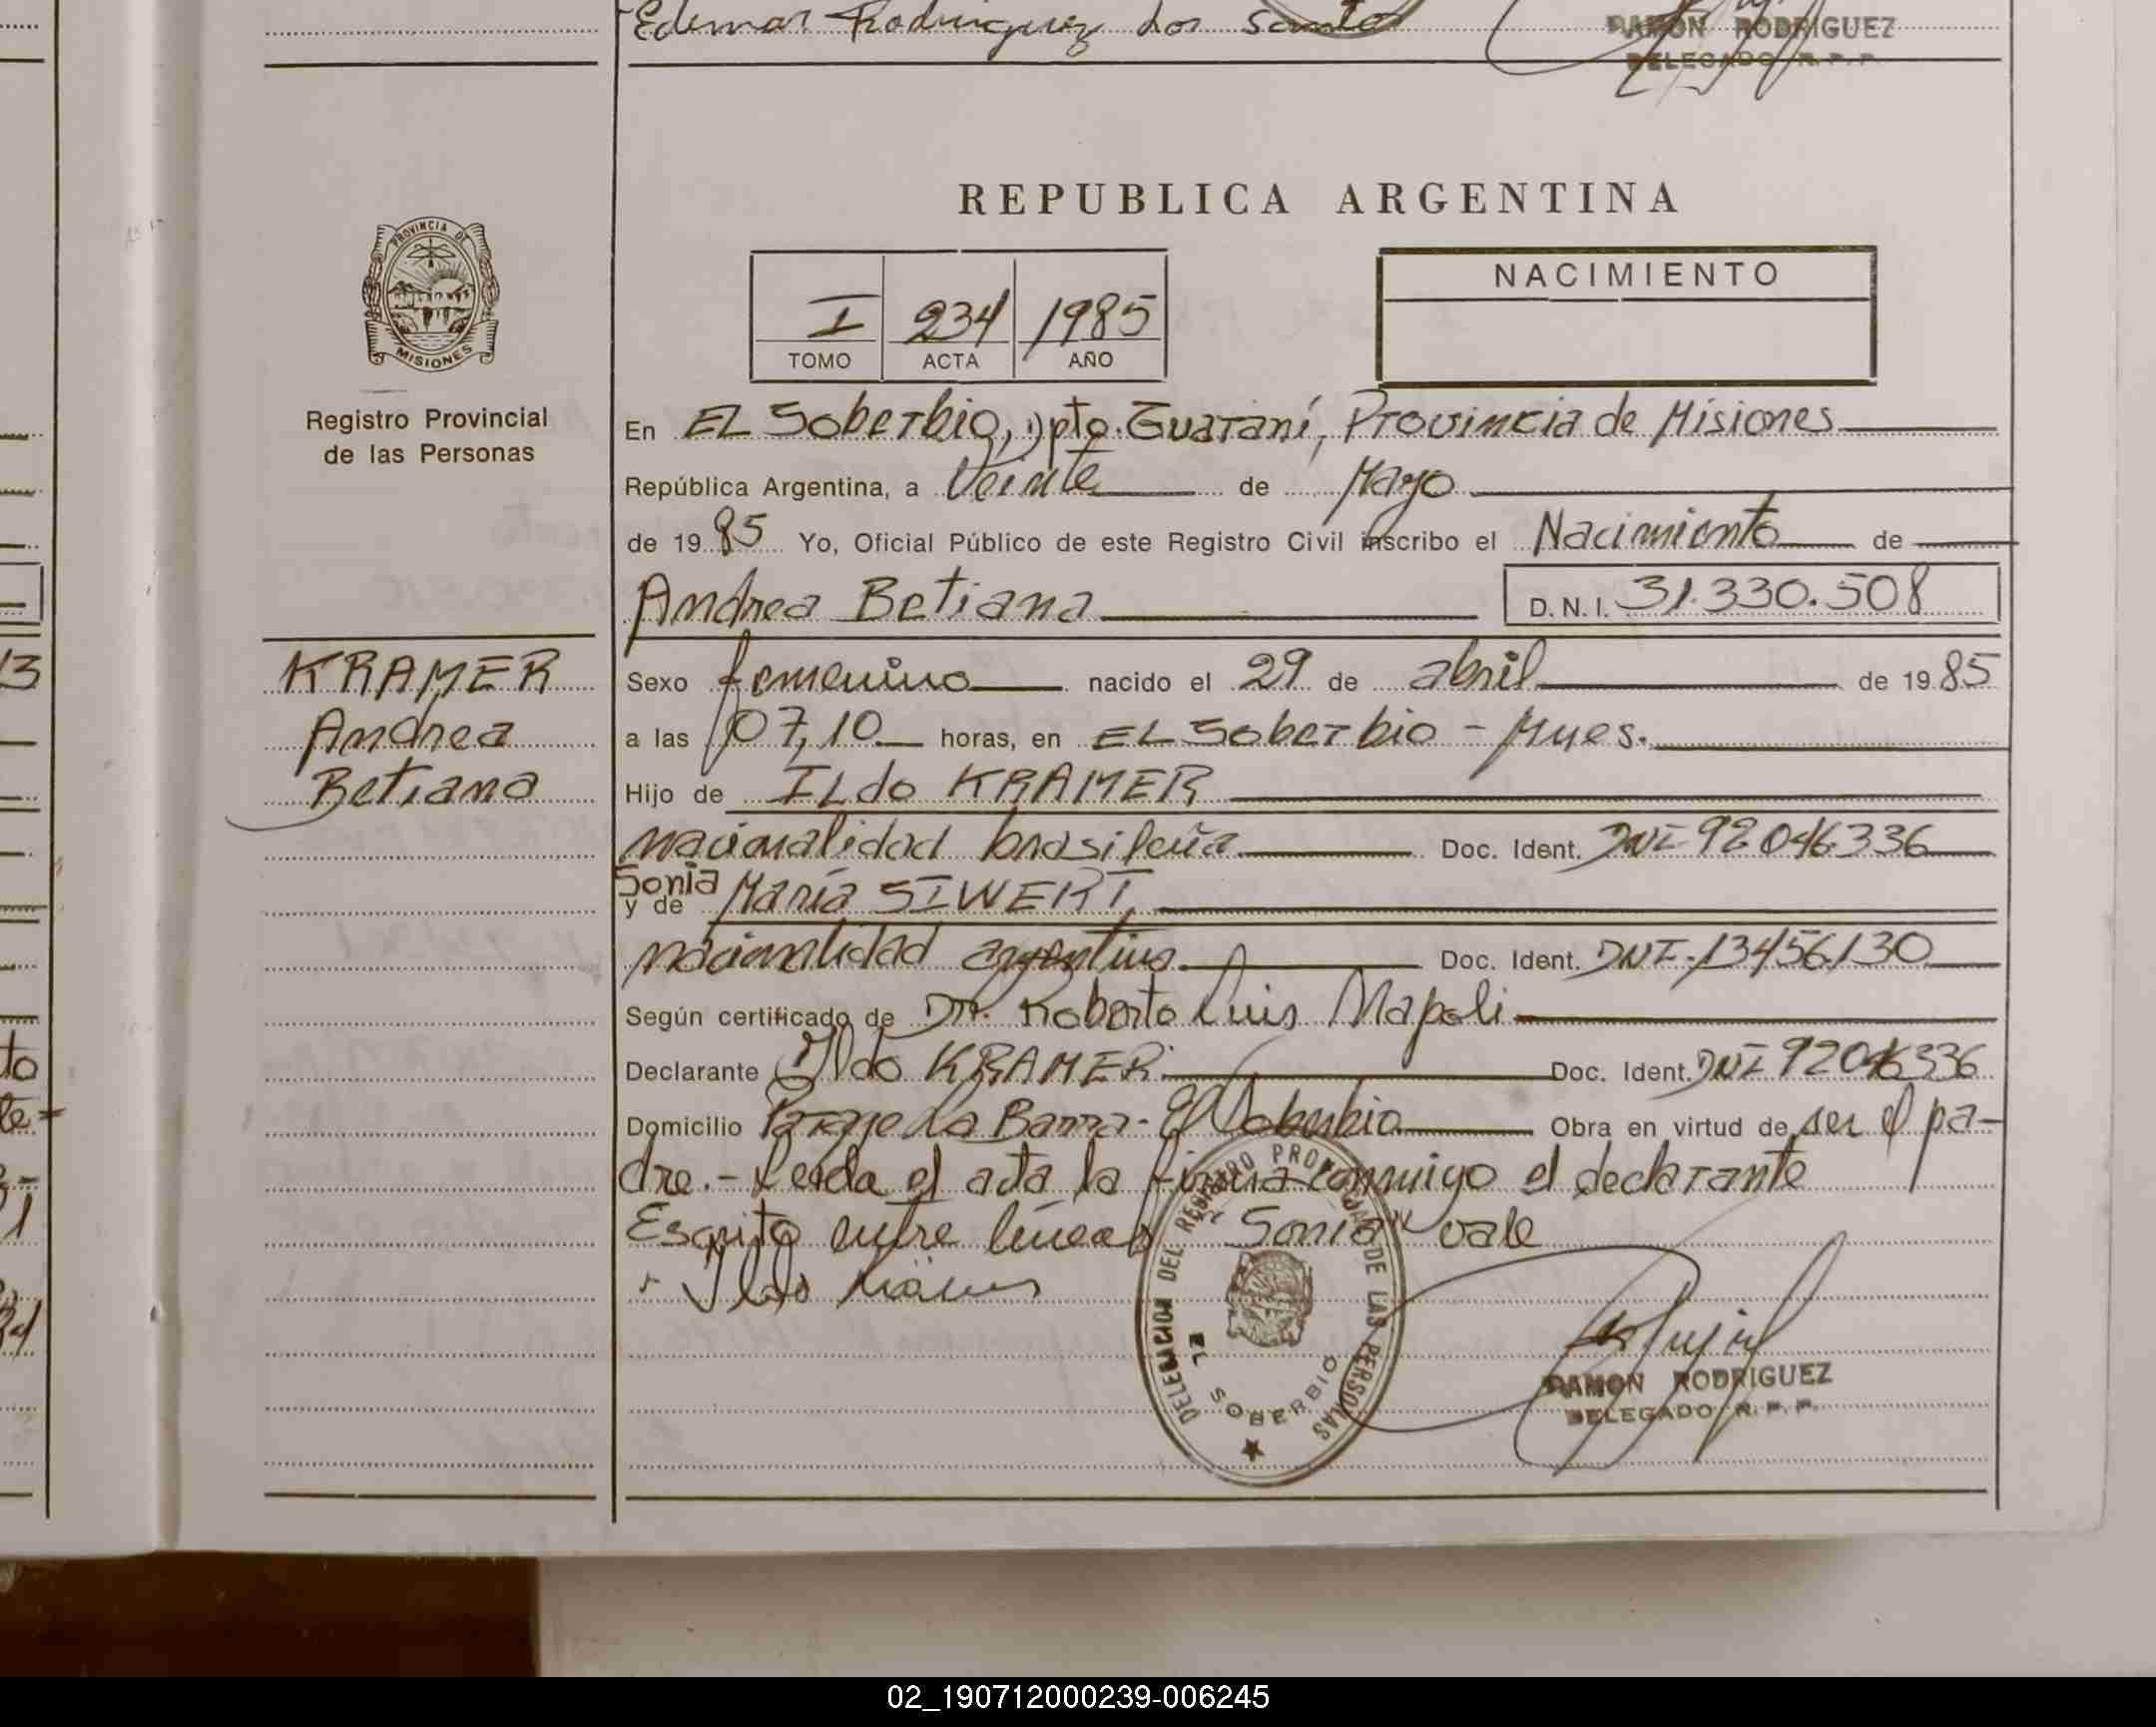 Edemar Rodriguez dos Santos
RAMON RODRIGUEZ
DELEGADO R. P. P.
REPUBLICA ARGENTINA
PROVINCIA DE
MISIONES
Registro Provincial
de las Personas
I 234 1985
TOMO ACTA AÑO
NACIMIENTO
En EL Soberbio, Dpto. Guaraní, Provincia de Misiones
República Argentina, a Veinte de Mayo
de 1985 Yo, Oficial Público de este Registro Civil inscribo el Nacimiento de
Andrea Betiana D.N.I. 31.330.508
KRAMER
Andrea
Betiana
Sexo femenino nacido el 29 de abril de 1985
a las 07,10 horas, en EL Soberbio - Mnes.
Hijo de ILdo KRAMER
nacionalidad brasileña Doc. Ident. DNI 92046336
Sonia
y de María SIWERT,
nacionalidad argentina Doc. Ident. DNI. 13456130
Según certificado de Dr. Roberto Luis Napoli
Declarante Ildo KRAMER Doc. Ident. DNI 92046336
Domicilio Paraje La Barra - El Soberbio Obra en virtud de ser el pa-
dre.- Leida el acta la firma conmigo el declarante
Escrito entre líneas "Sonia" vale
Ildo
DELEGACION DEL REGISTRO PROVINCIAL DE LAS PERSONAS
EL SOBERBIO
RAMON RODRIGUEZ
DELEGADO R. P. P.
02_190712000239-006245